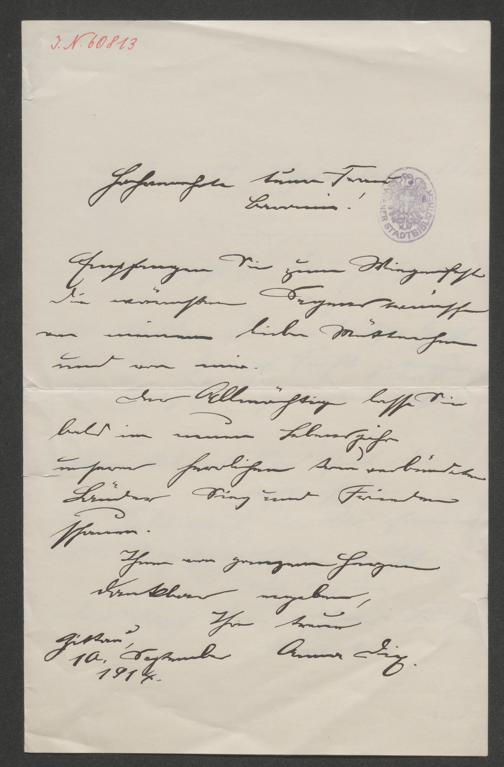 J.N. 60813
Hochverehrte teure Frau
Baronin!
WIENER STADTBIBLIOTHEK
Empfangen Sie zum Wiegenfeste
die wärmsten Segenswünsche
von meinem lieben Mütterchen
und von mir.
Der Allmächtige lasse Sie
bald im neuen Lebensjahr
unserer herrlichen treu verbündeten
Länder Sieg und Frieden
schauen.
Ihnen von ganzem Herzen
dankbar ergeben,
Ihre treue
Anna Dix.
Zittau,
10. September
1914.